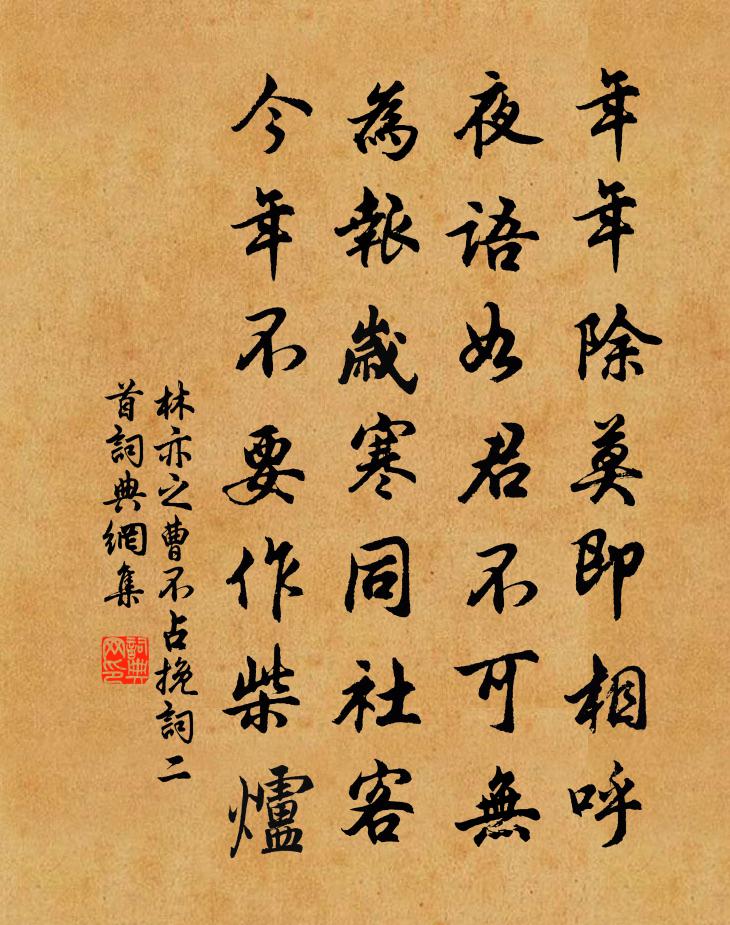 年年除莫即相呼
夜語如君不可無
為報歲寒同社客
今年不要作柴爐
林亦之曹不占挽詞二
首詞典網集
詞典網印